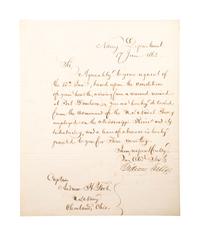 Navy Department,
17 June 1862.
Sir,
Agreeably to your request of
the 10th Inst., based upon the condition
of your health, arising from a wound received
at Fort Donelson, you are hereby detached
from the command of the Naval Forces
employed on the Mississippi River and its
tributaries, and leave of absence is hereby
granted to you for three months.
I am, respectfully,
Your Obt. Servt.
Gideon Welles
Captain
Andrew H. Foote,
U.S. Navy,
Cleveland, Ohio.